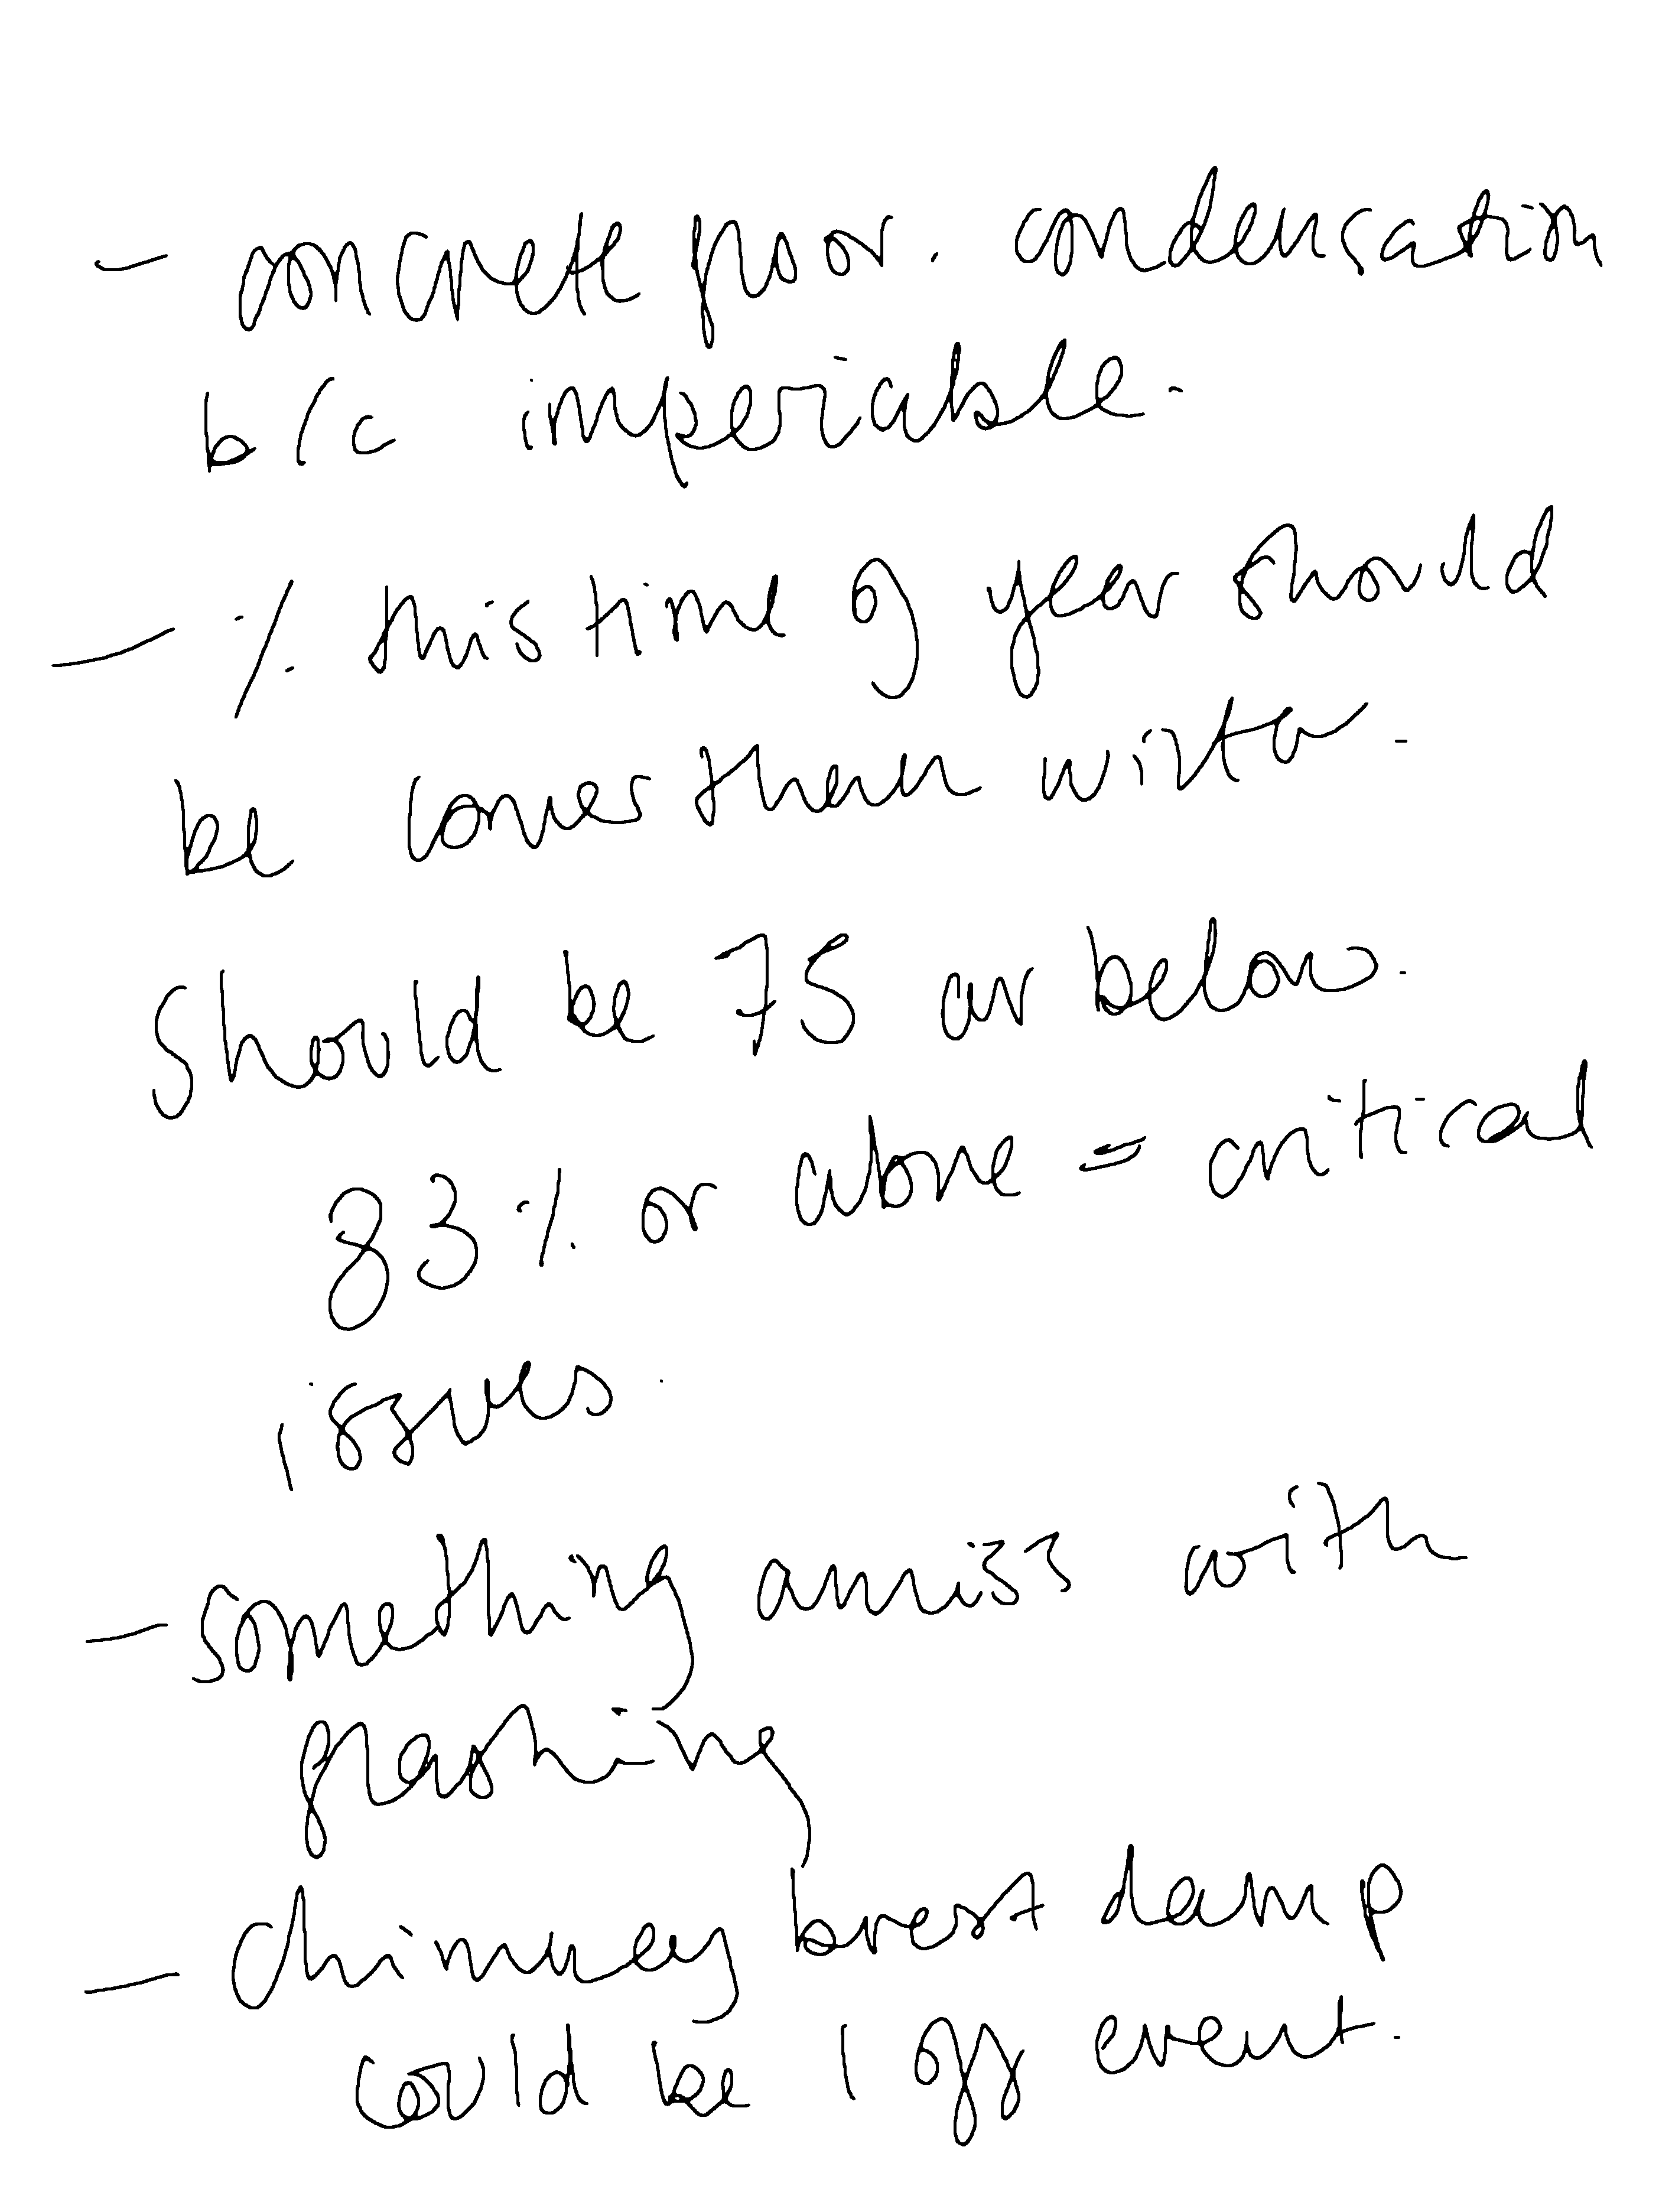 - concrete floor. condensation
b/c imperiable.
- % this time of year should
be lower than winter.
Should be 75 or below.
83% or above = critical
issues.
- something amiss with
flashing
- chimney brest damp
could be 1 off event.